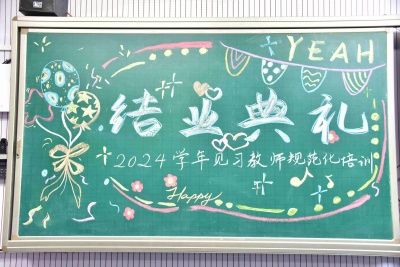 YEAH
结业典礼
2024学年见习教师规范化培训
Happy